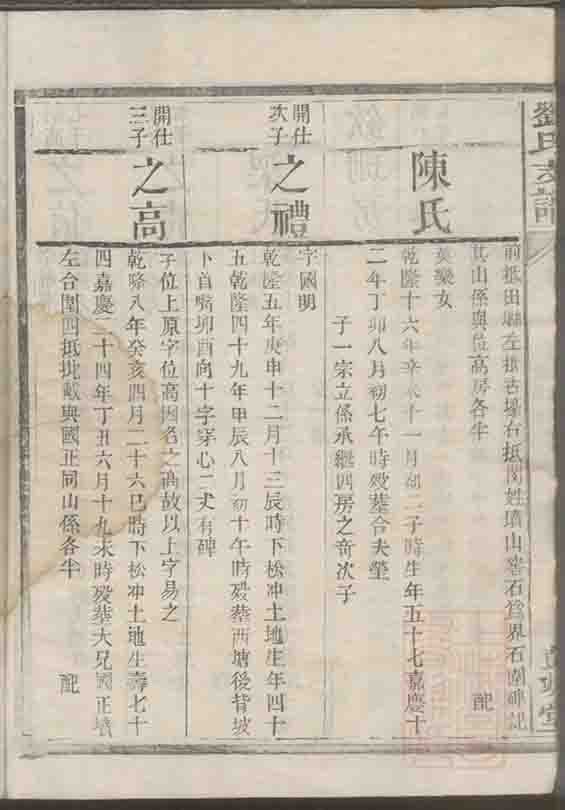 劉氏支譜
前抵田塍左抵古塲右抵閔姓墳山窖石爲界石圍碑記
其山係與位高房各半 配
陳氏
英樂女
乾隆十六年辛未十一月初二子時生年五十七嘉慶十
二年丁卯八月初七午時歿葬合夫塋
子一宗立係承繼四房之奇次子
開仕
次子
之禮
字國明
乾隆五年庚申十二月十三辰時下松冲土地生年四十
五乾隆四十九年甲辰八月初十午時歿葬西塘後背坡
卜首嘴卯酉向十字穿心二丈有碑
開仕
三子
之高
字位上原字位高因名之高故以上字易之
乾隆八年癸亥四月二十六巳時下松冲土地生壽七十
四嘉慶二十四年丁丑六月十九未時歿葬大兄國正墳
左合圍四抵批載與國正同山係各半 配